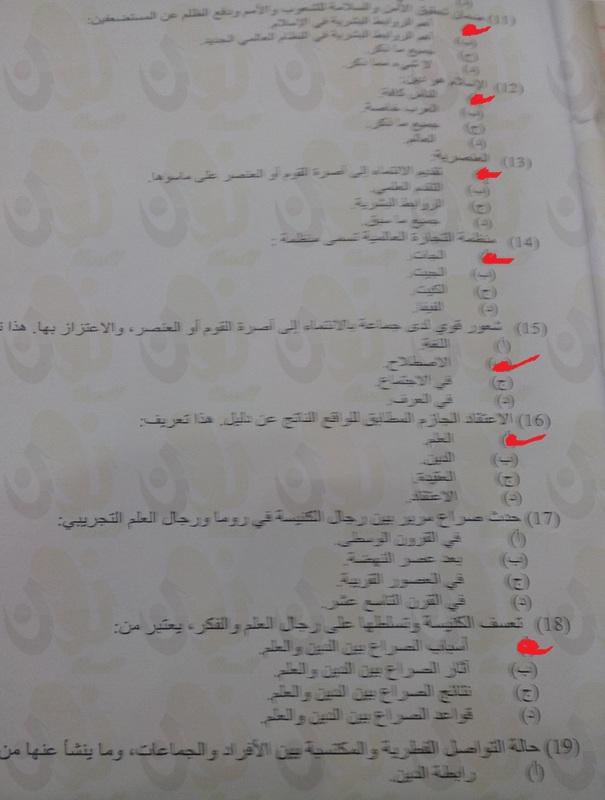 (11) ضمان تحقيق الأمن والسلامة للشعوب والأمم ودفع الظلم عن المستضعفين:
أهم الروابط البشرية في الإسلام.
(ب) أهم الروابط البشرية في النظام العالمي الجديد.
(ج) جميع ما ذكر.
(د) لا شيء مما ذكر.
(12) الإسلام هو دين:
للناس كافة.
(ب) العرب خاصة.
(ج) جميع ما ذكر.
(د) العالم.
(13) العنصرية:
تقديم الانتماء إلى آصرة القوم أو العنصر على ماسواها.
(ب) التقدم العلمي.
(ج) الروابط البشرية.
(د) جميع ما سبق.
(14) منظمة التجارة العالمية تسمى منظمة :
الجات.
(ب) الجيت.
(ج) الكيت.
(د) الفيفا.
(15) شعور قوي لدى جماعة بالانتماء إلى آصرة القوم أو العنصر، والاعتزاز بها. هذا
(أ) اللغة.
الاصطلاح.
(ج) في الاجتماع.
(د) في العرف.
(16) الاعتقاد الجازم المطابق للواقع الناتج عن دليل. هذا تعريف:
العلم.
(ب) الدين.
(ج) العقيدة.
(د) الاعتقاد.
(17) حدث صراع مرير بين رجال الكنيسة في روما ورجال العلم التجريبي:
(أ) في القرون الوسطى.
(ب) بعد عصر النهضة.
(ج) في العصور القريبة.
(د) في القرن التاسع عشر.
(18) تعسف الكنيسة وتسلطها على رجال العلم والفكر، يعتبر من:
أسباب الصراع بين الدين والعلم.
(ب) آثار الصراع بين الدين والعلم.
(ج) نتائج الصراع بين الدين والعلم.
(د) قواعد الصراع بين الدين والعلم.
(19) حالة التواصل الفطرية والمكتسبة بين الأفراد والجماعات، وما ينشأ عنها من
(أ) رابطة الدين.